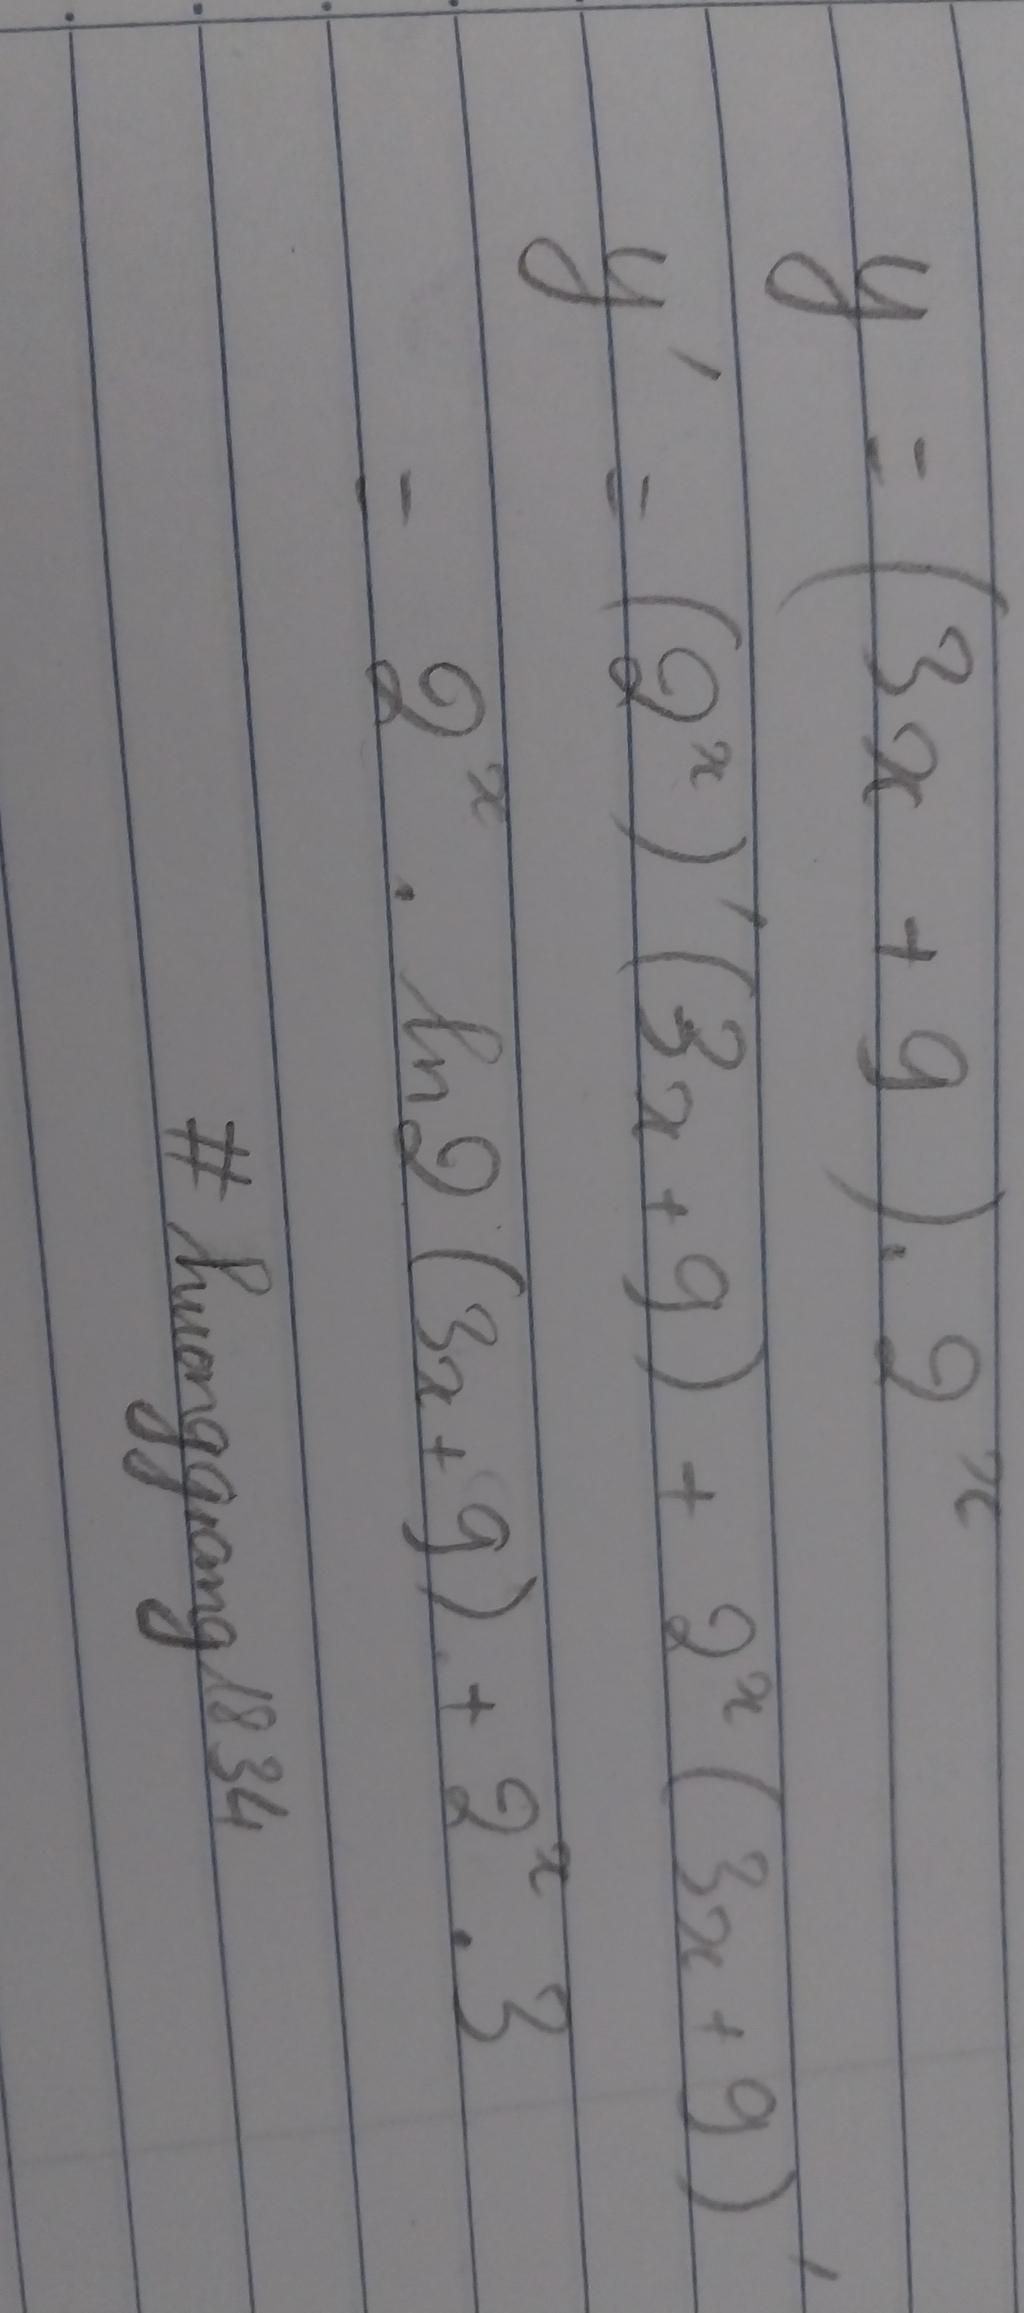 y = (3x + 9). 2ˣ
y' = (2ˣ)' (3x + 9) + 2ˣ (3x + 9)'
= 2ˣ . ln2 (3x + 9) + 2ˣ . 3
# huonggiang1834